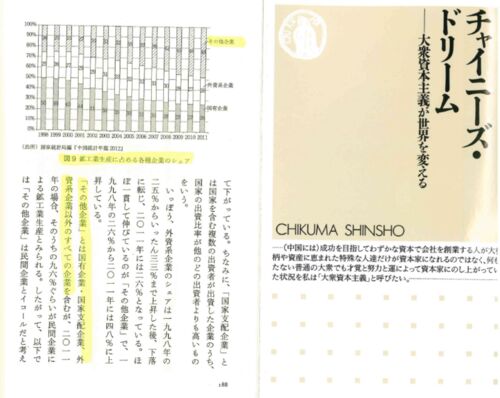 100%
90%
80%
70%
60%
50%
40%
30%
20%
10%
0%
その他企業
外資系企業
国有企業
1998 1999 2000 2001 2002 2003 2004 2005 2006 2007 2008 2009 2010 2011
(出所) 国家統計局編『中国統計年鑑2012』
図9 鉱工業生産に占める各種企業のシェア
て下がっている。ちなみに、「国家支配企業」と
は国家を含む複数の出資者が出資した企業のうち、
国家の出資比率が他のどの出資者よりも高いもの
をいう。
いっぽう、外資系企業のシェアは一九九八年の
二五%からいったん三三%まで上昇した後、下落
に転じ、二〇一一年には二六%となっている。ほ
ぼ一貫して伸びているのが「その他企業」で、一
九九八年の二六%から二〇一一年には四八%に上
昇している。
「その他企業」とは国有企業・国家支配企業、外
資系企業以外のすべての企業を含むが、二〇一一
年の場合、そのうちの九八%ぐらいが民間企業に
よる鉱工業生産とみられる。したがって、以下で
は「その他企業」は民間企業とイコールだと考え
188
チャイニーズ・
ドリーム
──大衆資本主義が世界を変える
CHIKUMA SHINSHO
──(中国には)成功を目指してわずかな資本で会社を創業する人が大
柄や資産に恵まれた特殊な人達だけが資本家になれるのではなく、何
たない普通の大衆でも才覚と努力と運によって資本家にのし上がってい
た状況を私は「大衆資本主義」と呼びたい。